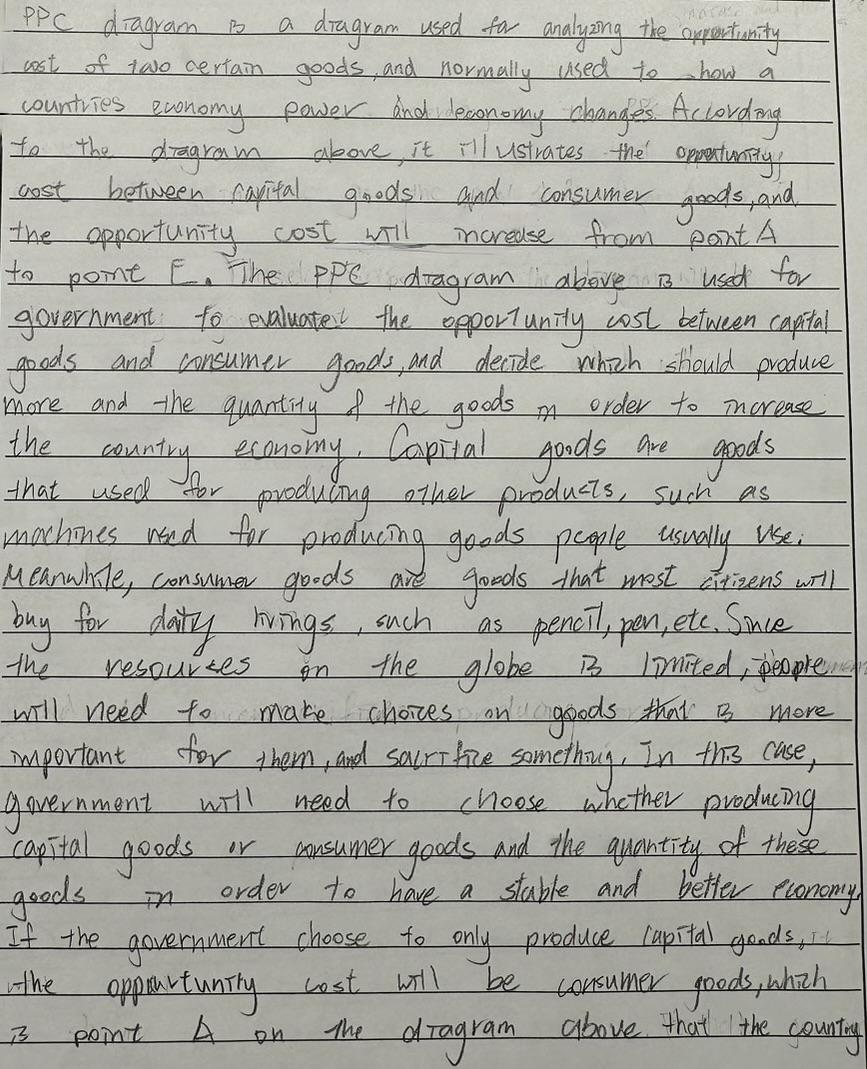 PPC diagram is a diagram used for analyzing the opportunity
cost of two certain goods, and normally used to show a
countries economy power and economy changes. According
to the diagram above, it illustrates the opportunity
cost between capital goods and consumer goods, and
the opportunity cost will increase from point A
to point E. The PPC diagram above is used for
government to evaluate the opportunity cost between capital
goods and consumer goods, and decide which should produce
more and the quantity of the goods in order to increase
the country economy. Capital goods are goods
that used for producing other products, such as
machines used for producing goods people usually use.
Meanwhile, consumer goods are goods that most citizens will
buy for daity livings, such as pencil, pen, etc. Since
the resourses on the globe is limited, people
will need to make choices on goods that is more
important for them, and sacrifice something. In this case,
government will need to choose whether producing
capital goods or consumer goods and the quantity of these
goods in order to have a stable and better economy.
If the government choose to only produce capital goods,
the opportunity cost will be consumer goods, which
is point A on the diagram above that the country